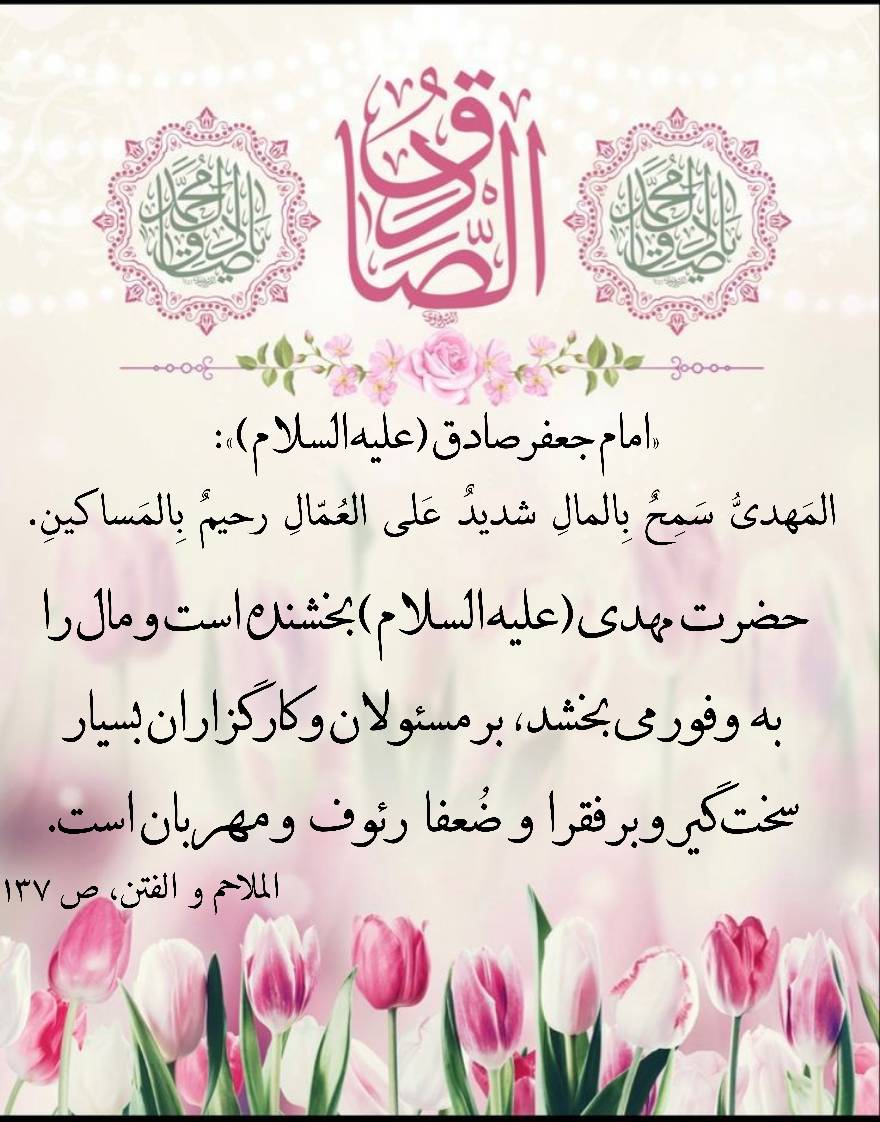 الصّادق
یا صادق آل محمد
یا صادق آل محمد
«امام جعفر صادق (علیه‌السلام)»:
المَهدیُّ سَمِحٌ بِالمالِ شدیدٌ عَلی العُمّالِ رحیمٌ بِالمَساکینِ.
حضرت مهدی (علیه‌السلام) بخشنده است و مال را
به وفور می‌بخشد، بر مسئولان و کارگزاران بسیار
سخت‌گیر و بر فقرا و ضُعفا رئوف و مهربان است.
الملاحم و الفتن، ص ۱۳۷